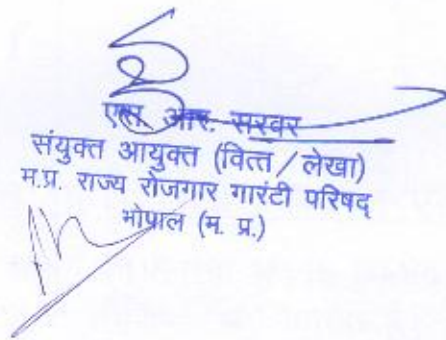 एस. आर. सरवर
संयुक्त आयुक्त (वित्त / लेखा)
म.प्र. राज्य रोजगार गारंटी परिषद्
भोपाल (म. प्र.)